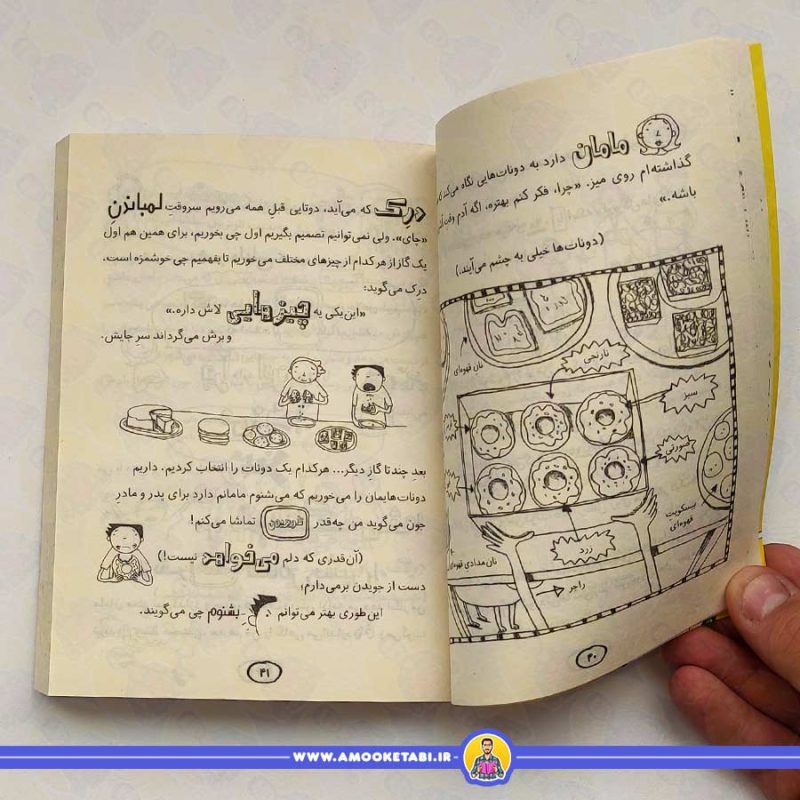 مامان دارد به دونات‌هایی نگاه می‌کند که
گذاشته‌ام روی میز. «چرا، فکر کنم بهتره، اگه آدم وقت
باشه.»
(دونات‌ها خیلی به چشم می‌آیند.)
نان قهوه‌ای
نارنجی
سبز
صورتی
بیسکویت
قهوه‌ای
زرد
نان مدادی قهوه‌ای
راجر
۴۰
درک که می‌آید، دوتایی قبلِ همه می‌رویم سروقتِ لمباندنِ
«چای». ولی نمی‌توانیم تصمیم بگیریم اول چی بخوریم، برای همین هم اول
یک گاز از هر کدام از چیزهای مختلف می‌خوریم تا بفهمیم چی خوشمزه است.
درک می‌گوید:
«این یکی یه چیزهایی لاش داره.»
و برش می‌گرداند سرِ جایش.
بعدِ چندتا گازِ دیگر... هرکدام یک دونات را انتخاب کردیم. داریم
دونات‌هایمان را می‌خوریم که می‌شنوم مامانم دارد برای پدر و مادرِ
جون می‌گوید من چه‌قدر تلویزیون تماشا می‌کنم!
(آن‌قدری که دلم می‌خواهد نیست!)
دست از جویدن برمی‌دارم؛
این‌طوری بهتر می‌توانم بشنوم چی می‌گویند.
۴۱
WWW.AMOOKETABI.IR